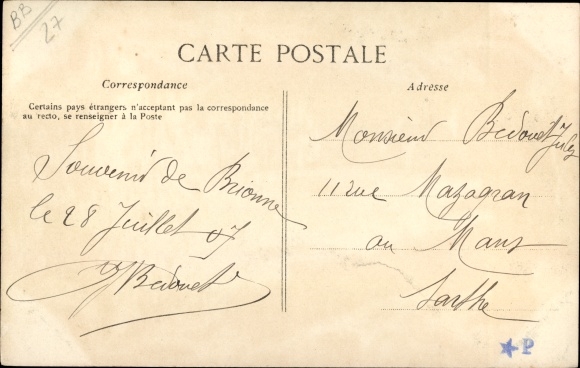 BB
27
CARTE POSTALE
Correspondance
Certains pays étrangers n'acceptant pas la correspondance
au recto, se renseigner à la Poste
Souvenir de Brionne
le 28 Juillet 07
J Bedouet
Adresse
Monsieur Bedouet Jules
11 rue Mazagran
au Mans
Sarthe
★P